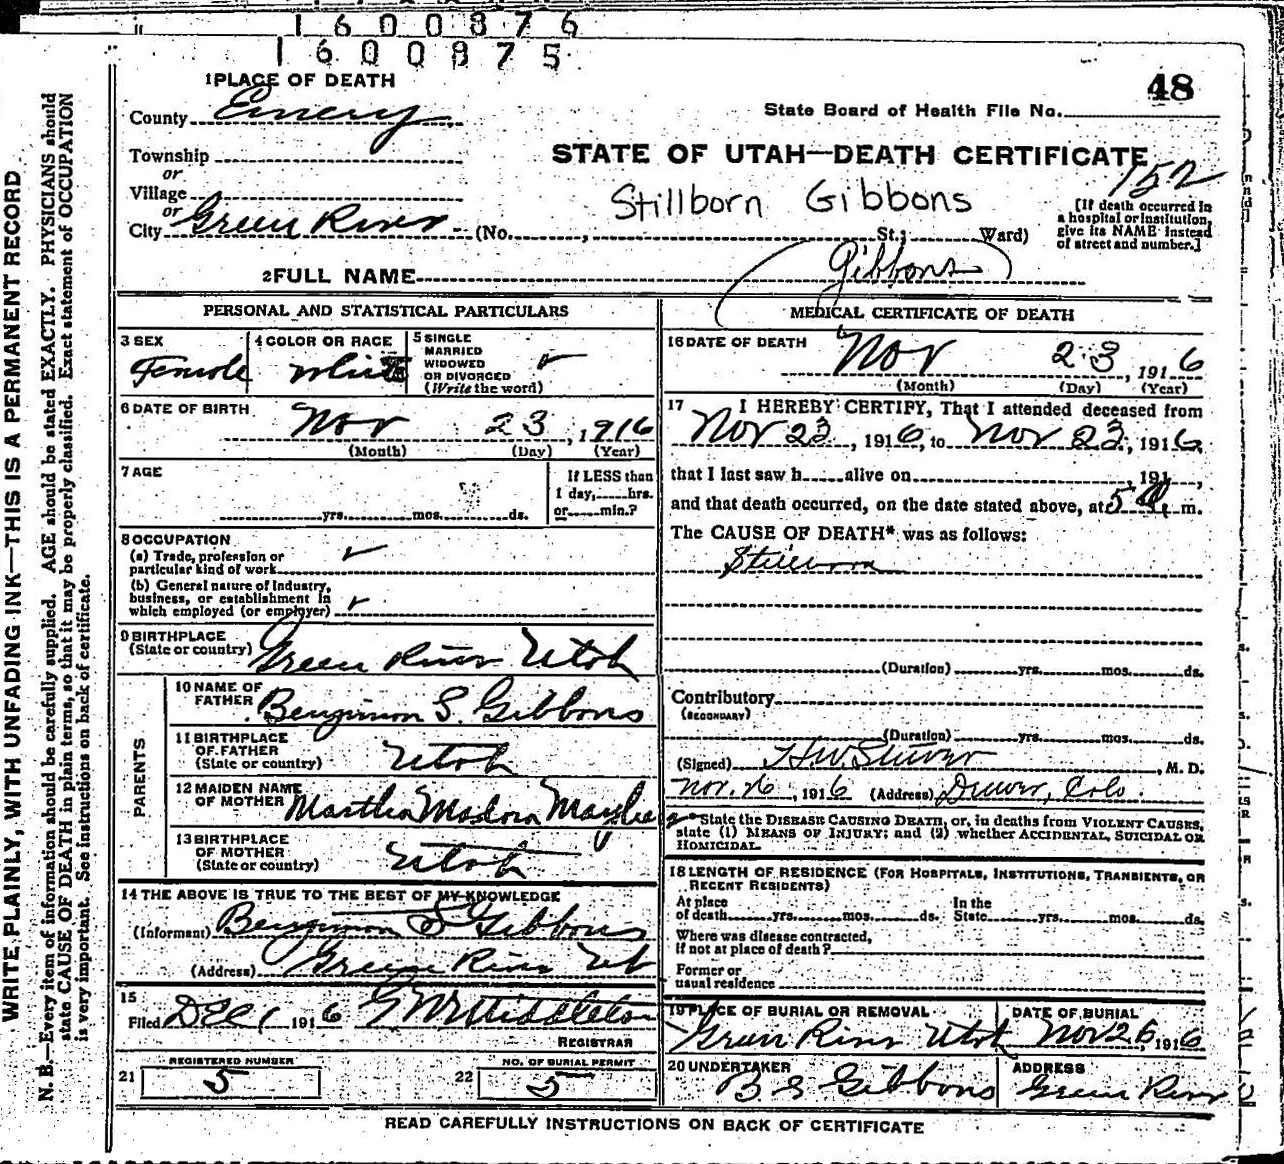 1600876
1600875
48
1 PLACE OF DEATH
County Emery
State Board of Health File No.
Township
STATE OF UTAH—DEATH CERTIFICATE
or
152
Village
Stillborn Gibbons
or
City Green River (No. , St.; Ward)
[If death occurred in
a hospital or institution,
give its NAME instead
of street and number.]
2 FULL NAME (Gibbons)
PERSONAL AND STATISTICAL PARTICULARS
3 SEX
Female
4 COLOR OR RACE
White
5 SINGLE
MARRIED
WIDOWED
OR DIVORCED
(Write the word)
6 DATE OF BIRTH
Nov 23, 1916
(Month) (Day) (Year)
7 AGE
yrs. mos. ds.
If LESS than
1 day, hrs.
or min.?
8 OCCUPATION
(a) Trade, profession or
particular kind of work
(b) General nature of industry,
business, or establishment in
which employed (or employer)
9 BIRTHPLACE
(State or country) Green River Utah
PARENTS
10 NAME OF
FATHER Benjimon S. Gibbons
11 BIRTHPLACE
OF FATHER
(State or country) Utah
12 MAIDEN NAME
OF MOTHER Martha
13 BIRTHPLACE
OF MOTHER
(State or country) Utah
14 THE ABOVE IS TRUE TO THE BEST OF MY KNOWLEDGE
(Informant) Benjimon S Gibbons
(Address) Greene River Ut
15
Filed Dec 1 1916 Middleton
REGISTRAR
REGISTERED NUMBER
21 5
NO. OF BURIAL PERMIT
22 5
MEDICAL CERTIFICATE OF DEATH
16 DATE OF DEATH
Nov 23, 1916
(Month) (Day) (Year)
17 I HEREBY CERTIFY, That I attended deceased from
Nov 23, 1916, to Nov 23, 1916,
that I last saw h alive on , 191 ,
and that death occurred, on the date stated above, at 5 a. m.
The CAUSE OF DEATH* was as follows:
Stillborn
(Duration) yrs. mos. ds.
Contributory
(SECONDARY)
(Duration) yrs. mos. ds.
(Signed) , M. D.
Nov. 26, 1916 (Address) Denver, Colo.
*State the DISEASE CAUSING DEATH, or, in deaths from VIOLENT CAUSES,
state (1) MEANS OF INJURY; and (2) whether ACCIDENTAL, SUICIDAL OR
HOMICIDAL.
18 LENGTH OF RESIDENCE (FOR HOSPITALS, INSTITUTIONS, TRANSIENTS, OR
RECENT RESIDENTS)
At place
of death yrs. mos. ds.
In the
State yrs. mos. ds.
Where was disease contracted,
if not at place of death?
Former or
usual residence
19 PLACE OF BURIAL OR REMOVAL
Green River Utah
DATE OF BURIAL
Nov 26, 1916
20 UNDERTAKER
B S Gibbons
ADDRESS
Green River
READ CAREFULLY INSTRUCTIONS ON BACK OF CERTIFICATE
WRITE PLAINLY, WITH UNFADING INK—THIS IS A PERMANENT RECORD
N. B.—Every item of information should be carefully supplied. AGE should be stated EXACTLY. PHYSICIANS should
state CAUSE OF DEATH in plain terms, so that it may be properly classified. Exact statement of OCCUPATION
is very important. See instructions on back of certificate.